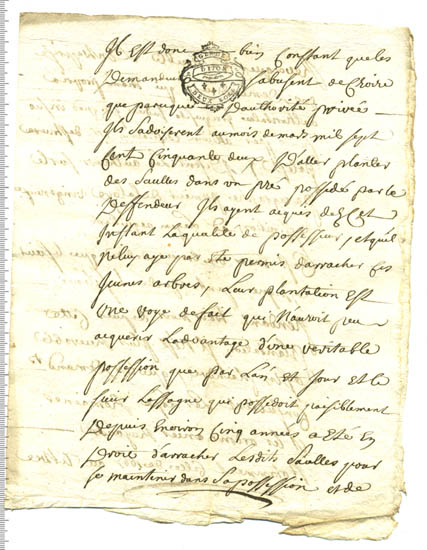 Il Est donc bien Constant que les
Demandeurs s'abusent de Croire
que parceque d'authorité privée
Ils s'adviserent au mois de mars mil sept
Cent Cinquante deux d'aller planter
des Saulles dans un pré possedé par le
Deffendeur Ils ayent acquis de Cet
Instant La qualité de possesseur, et qu'il
N'eluy aye pas Eté permis d'arracher Ces
Jeunes arbres, Leur plantation Est
Une Voye de fait qui N'auroit peu
acquerir L'advantage d'une Veritable
possession que par L'an Et Jour Et le
sieur Lassagne qui possedoit paisiblement
Depuis Environ Cinq années a Eté En
Droit d'arracher Lesdits Saulles pour
se maintenir dans Sa possession Et de